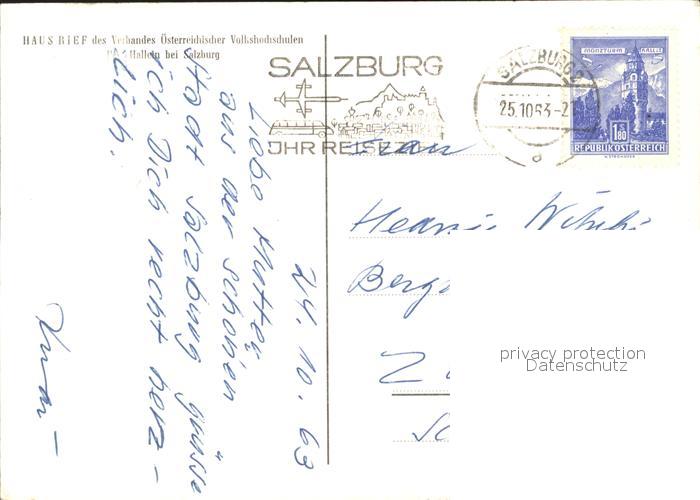 HAUS RIEF des Verbandes Österreichischer Volkshochschulen
Hallein bei Salzburg
SALZBURG
JHR REISEZIEL
SALZBURG 2
25.10.63-2
MÜNZTURM HALL I.T.
1.80
REPUBLIK ÖSTERREICH
24.10.63
Liebe Mutter,
aus der schönen
Stadt Salzburg grüsse
ich Dich recht herz-
lich.
Frau
privacy protection
Datenschutz